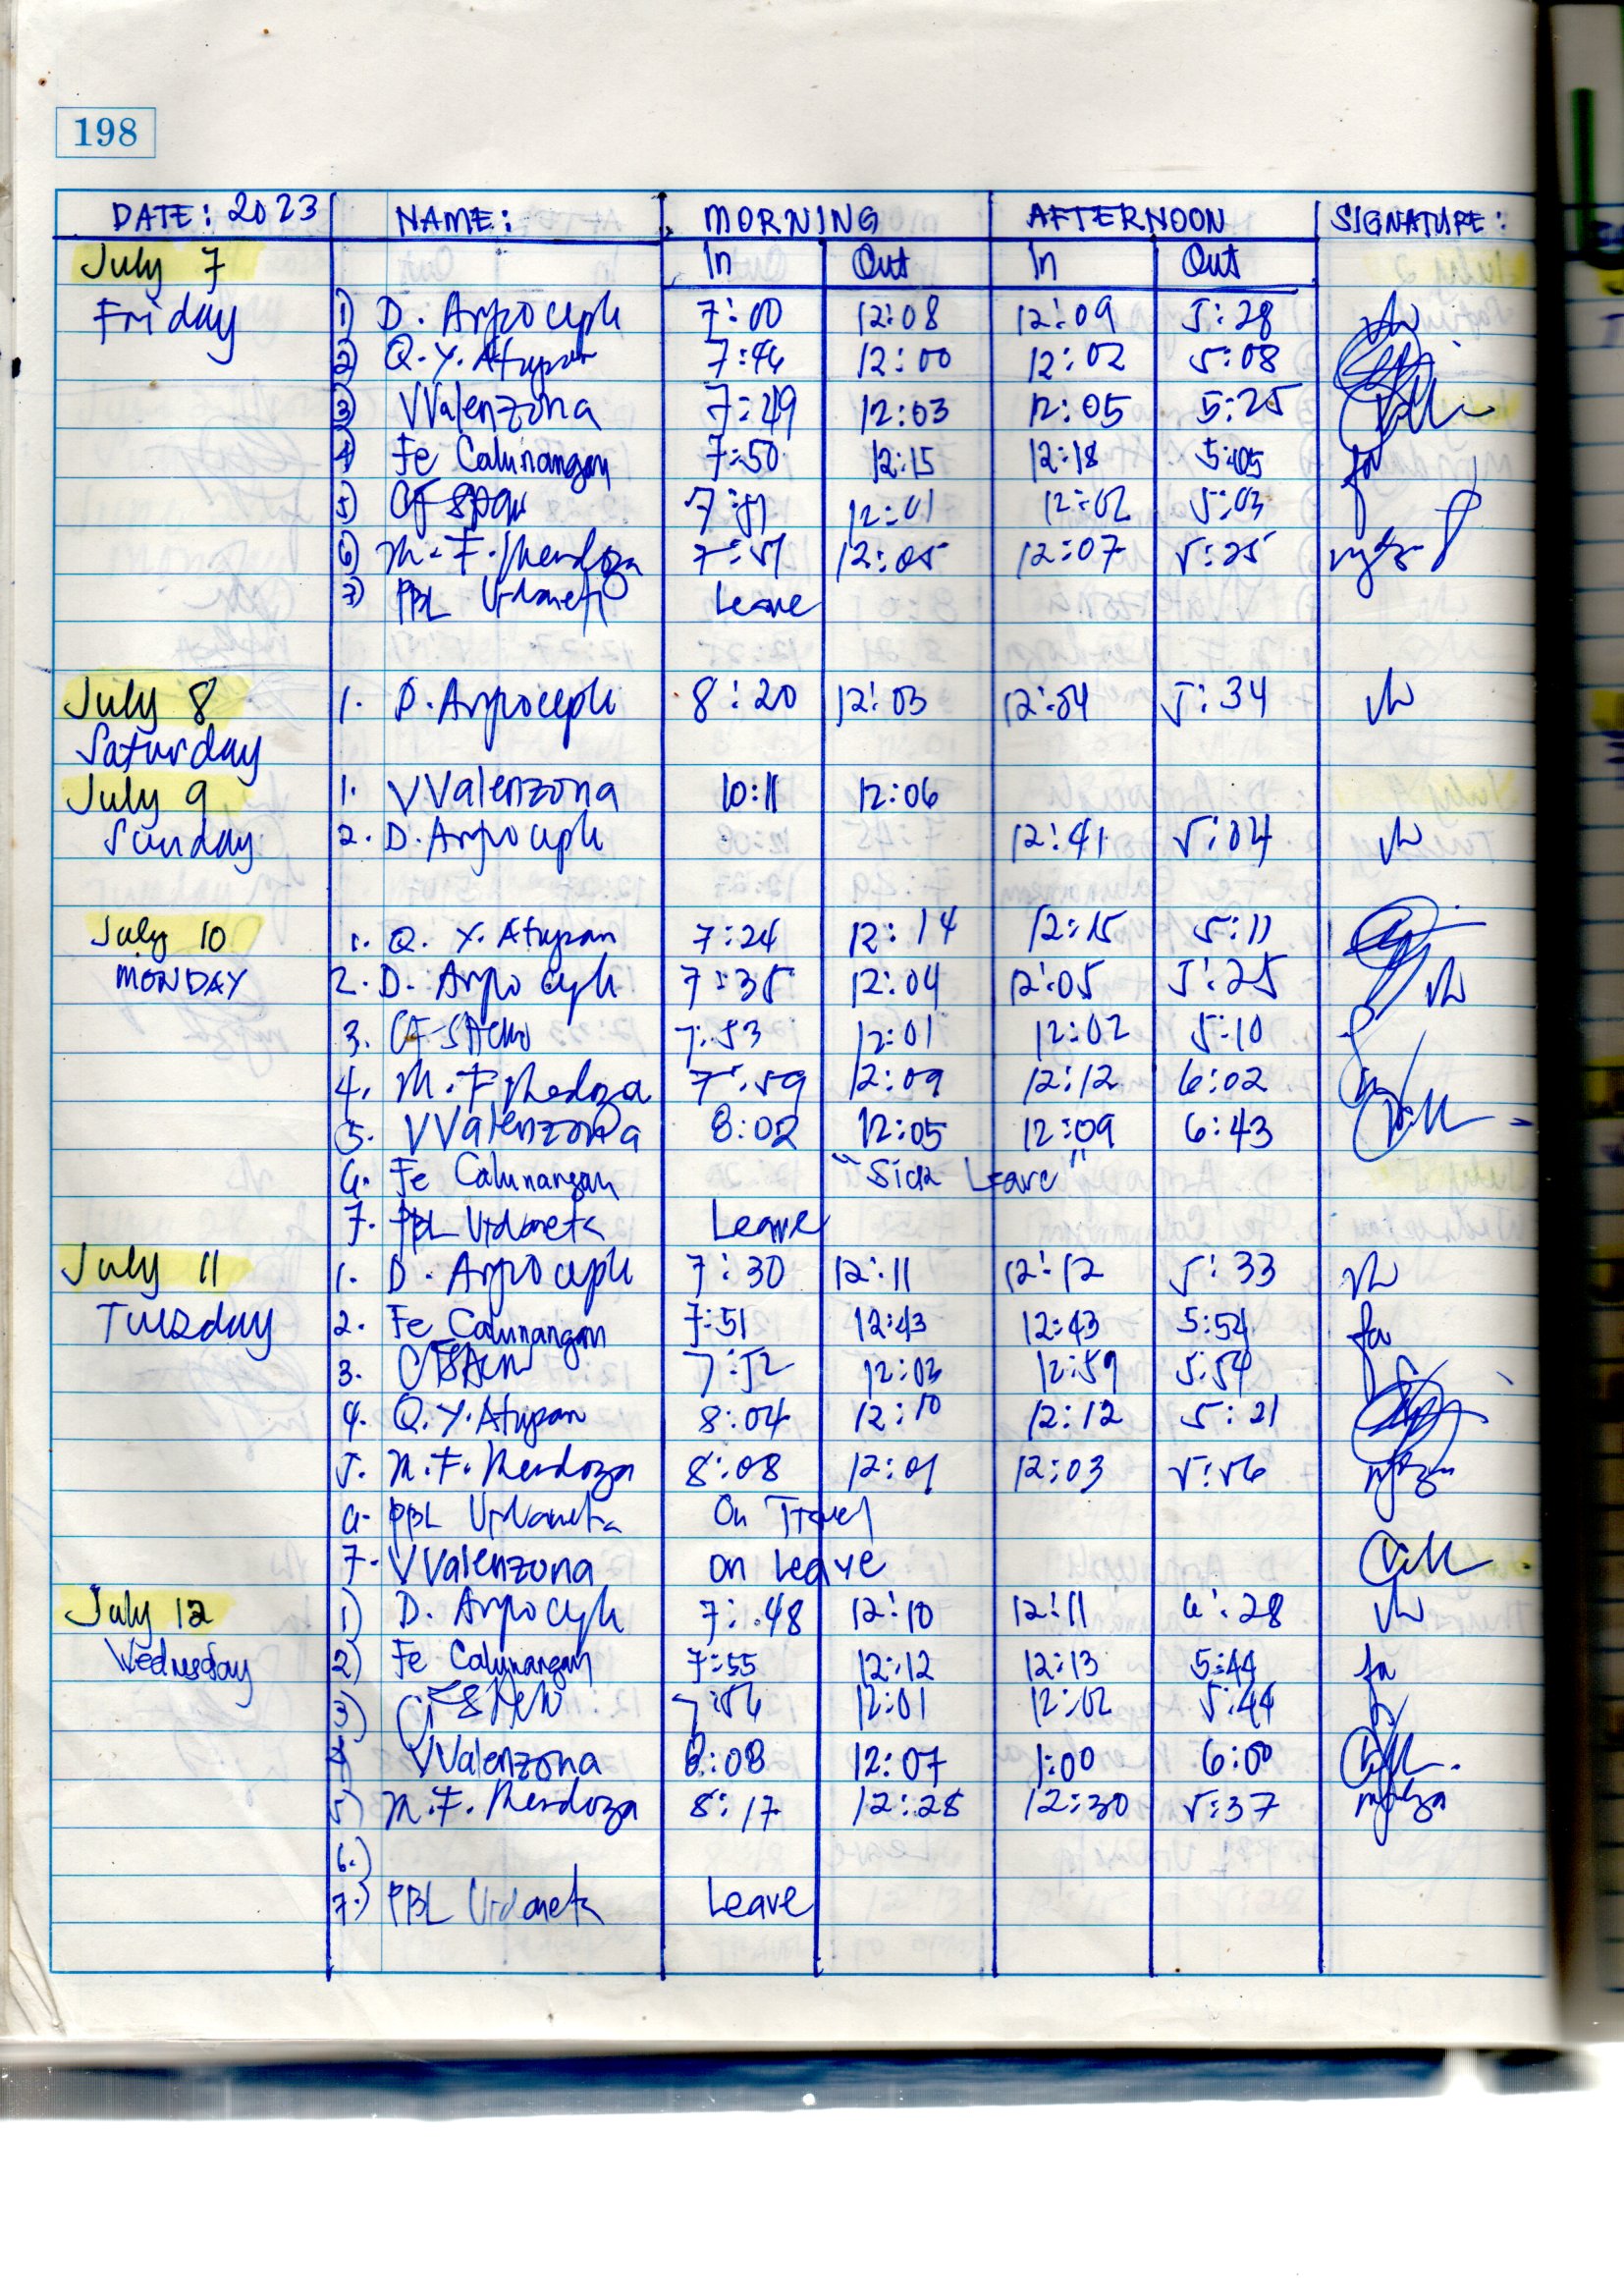 198
DATE: 2023 NAME: MORNING AFTERNOON SIGNATURE:
July 7 In Out In Out
Friday 1) D. 7:00 12:08 12:09 5:28
2) Q. Y. Atupan 7:46 12:00 12:02 5:08
3) VValenzona 7:49 12:03 12:05 5:25
4) Fe Calunangan 7:50 12:15 12:18 5:05
5) 7:51 12:01 12:02 5:03
6) M. F. Mendoza 7:51 12:05 12:07 5:25
7) PBL Urdaneta Leave
July 8 1. D. 8:20 12:03 12:04 5:34
Saturday
July 9 1. VValenzona 10:11 12:06
Sunday 2. D. 12:41 5:04
July 10 1. Q. Y. Atupan 7:24 12:14 12:15 5:11
MONDAY 2. D. 7:35 12:04 12:05 5:25
3. 7:53 12:01 12:02 5:10
4. M. F. Mendoza 7:59 12:09 12:12 6:02
5. VValenzona 8:02 12:05 12:09 6:43
6. Fe Calunangan "Sick Leave"
7. PBL Urdaneta Leave
July 11 1. D. 7:30 12:11 12:12 5:33
Tuesday 2. Fe Calunangan 7:51 12:43 12:43 5:54
3. 7:52 12:03 12:59 5:54
4. Q. Y. Atupan 8:04 12:10 12:12 5:21
5. M. F. Mendoza 8:08 12:01 12:03 5:56
6. PBL Urdaneta On Travel
7. VValenzona on Leave
July 12 1) D. 7:48 12:10 12:11 6:28
Wednesday 2) Fe Calunangan 7:55 12:12 12:13 5:44
3) 7:56 12:01 12:02 5:44
4) VValenzona 8:08 12:07 1:00 6:00
5) M. F. Mendoza 8:17 12:28 12:30 5:37
6.)
7.) PBL Urdaneta Leave